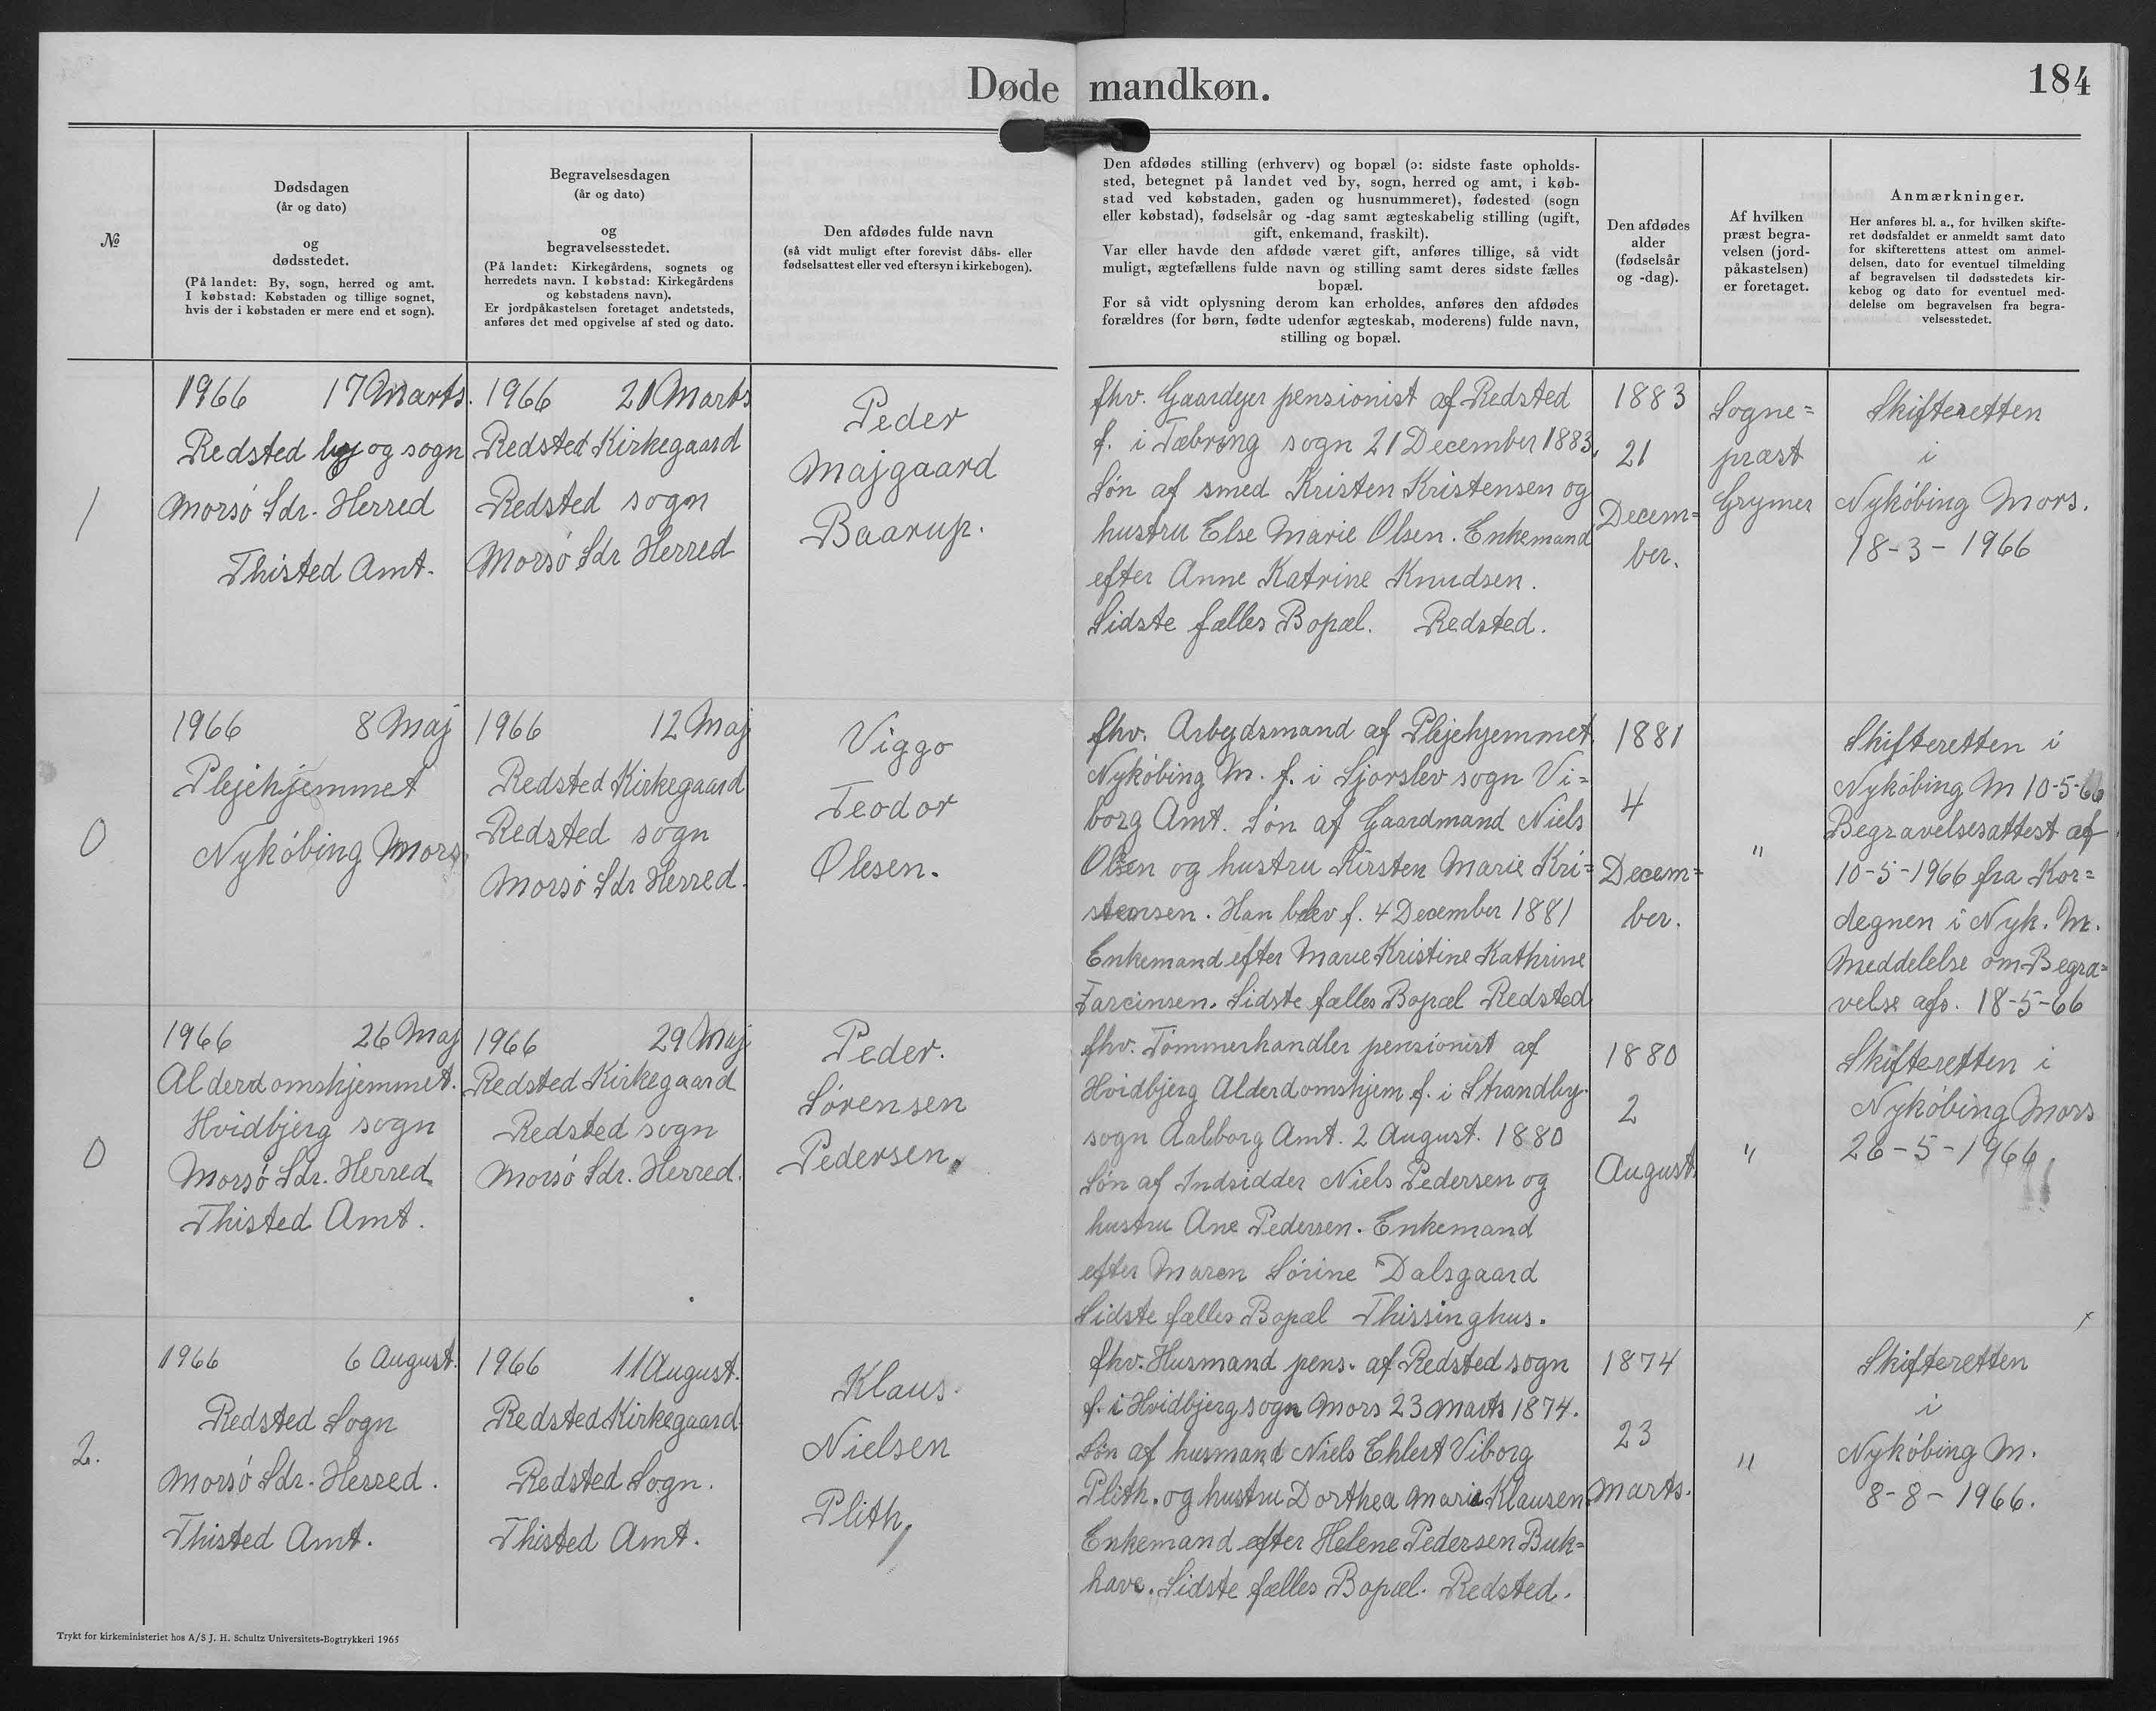 Døde mandkøn.
184
№
Dødsdagen
(år og dato)
og
dødsstedet.
(På landet: By, sogn, herred og amt.
I købstad: Købstaden og tillige sognet,
hvis der i købstaden er mere end et sogn).
Begravelsesdagen
(år og dato)
og
begravelsesstedet.
(På landet: Kirkegårdens, sognets og
herredets navn. I købstad: Kirkegårdens
og købstadens navn).
Er jordpåkastelsen foretaget andetsteds,
anføres det med opgivelse af sted og dato.
Den afdødes fulde navn
(så vidt muligt efter forevist dåbs- eller
fødselsattest eller ved eftersyn i kirkebogen).
Den afdødes stilling (erhverv) og bopæl (ɔ: sidste faste opholds-
sted, betegnet på landet ved by, sogn, herred og amt, i køb-
stad ved købstaden, gaden og husnummeret), fødested (sogn
eller købstad), fødselsår og -dag samt ægteskabelig stilling (ugift,
gift, enkemand, fraskilt).
Var eller havde den afdøde været gift, anføres tillige, så vidt
muligt, ægtefællens fulde navn og stilling samt deres sidste fælles
bopæl.
For så vidt oplysning derom kan erholdes, anføres den afdødes
forældres (for børn, fødte udenfor ægteskab, moderens) fulde navn,
stilling og bopæl.
Den afdødes
alder
(fødselsår
og -dag).
Af hvilken
præst begra-
velsen (jord-
påkastelsen)
er foretaget.
Anmærkninger.
Her anføres bl. a., for hvilken skifte-
ret dødsfaldet er anmeldt samt dato
for skifterettens attest om anmel-
delsen, dato for eventuel tilmelding
af begravelsen til dødsstedets kir-
kebog og dato for eventuel med-
delelse om begravelsen fra begra-
velsesstedet.
1
1966 17 Marts.
Redsted by og sogn
Morsö Sdr. Herred
Thisted Amt.
1966 21 Marts
Redsted Kirkegaard
Redsted sogn
Morsö Sdr Herred
Peder
Majgaard
Baarup.
fhv. Gaardejer pensionist af Redsted
f. i Tæbring sogn 21 December 1883.
Søn af smed Kristen Kristensen og
hustru Else Marie Olsen. Enkemand
efter Anne Katrine Knudsen.
Sidste fælles Bopæl. Redsted.
1883
21
Decem=
ber.
Sogne=
præst
Grymer
Skifteretten
i
Nyköbing Mors.
18-3-1966
0
1966 8 Maj
Plejehjemmet
Nyköbing Mors.
1966 12 Maj
Redsted Kirkegaard
Redsted sogn
Morsö Sdr Herred.
Viggo
Teodor
Olesen.
fhv. Arbejdsmand af Plejehjemmet.
Nyköbing M. f. i Sjorslev sogn Vi=
borg Amt. Søn af Gaardmand Niels
Olsen og hustru Kirsten Marie Kri=
stensen. Han blev f. 4 December 1881
Enkemand efter Marie Kristine Kathrine
Farcinsen. Sidste fælles Bopæl Redsted
1881
4
Decem=
ber.
"
Skifteretten i
Nyköbing M 10-5-66
Begravelsesattest af
10-5-1966 fra Kor=
degnen i Nyk. M.
Meddelelse om Begra=
velse afs. 18-5-66
0
1966 26 Maj
Alderdomshjemmet.
Hvidbjerg sogn
Morsö Sdr. Herred
Thisted Amt.
1966 29 Maj
Redsted Kirkegaard
Redsted sogn
Morsö Sdr. Herred.
Peder.
Sörensen
Pedersen.
fhv. Tömmerhandler pensionist af
Hvidbjerg Alderdomshjem f. i Strandby
sogn Aalborg Amt. 2 August. 1880
Søn af Indsidder Niels Pedersen og
hustru Ane Pedersen. Enkemand
efter Maren Sörine Dalsgaard
Sidste fælles Bopæl Thissinghus.
1880
2
August.
"
Skifteretten i
Nyköbing Mors
26-5-1966.
2.
1966 6 August.
Redsted Sogn
Morsö Sdr. Herred.
Thisted Amt.
1966 11 August.
Redsted Kirkegaard.
Redsted Sogn.
Thisted Amt.
Klaus
Nielsen
Plith,
fhv. Husmand pens. af Redsted sogn
f. i Hvidbjerg sogn Mors 23 Marts 1874.
Søn af husmand Niels Ehlert Viborg
Plith. og hustru Dorthea Marie Klausen.
Enkemand efter Helene Pedersen Buk=
have. Sidste fælles Bopæl. Redsted.
1874
23
Marts.
"
Skifteretten
i
Nyköbing M.
8-8-1966.
Trykt for kirkeministeriet hos A/S J. H. Schultz Universitets-Bogtrykkeri 1965